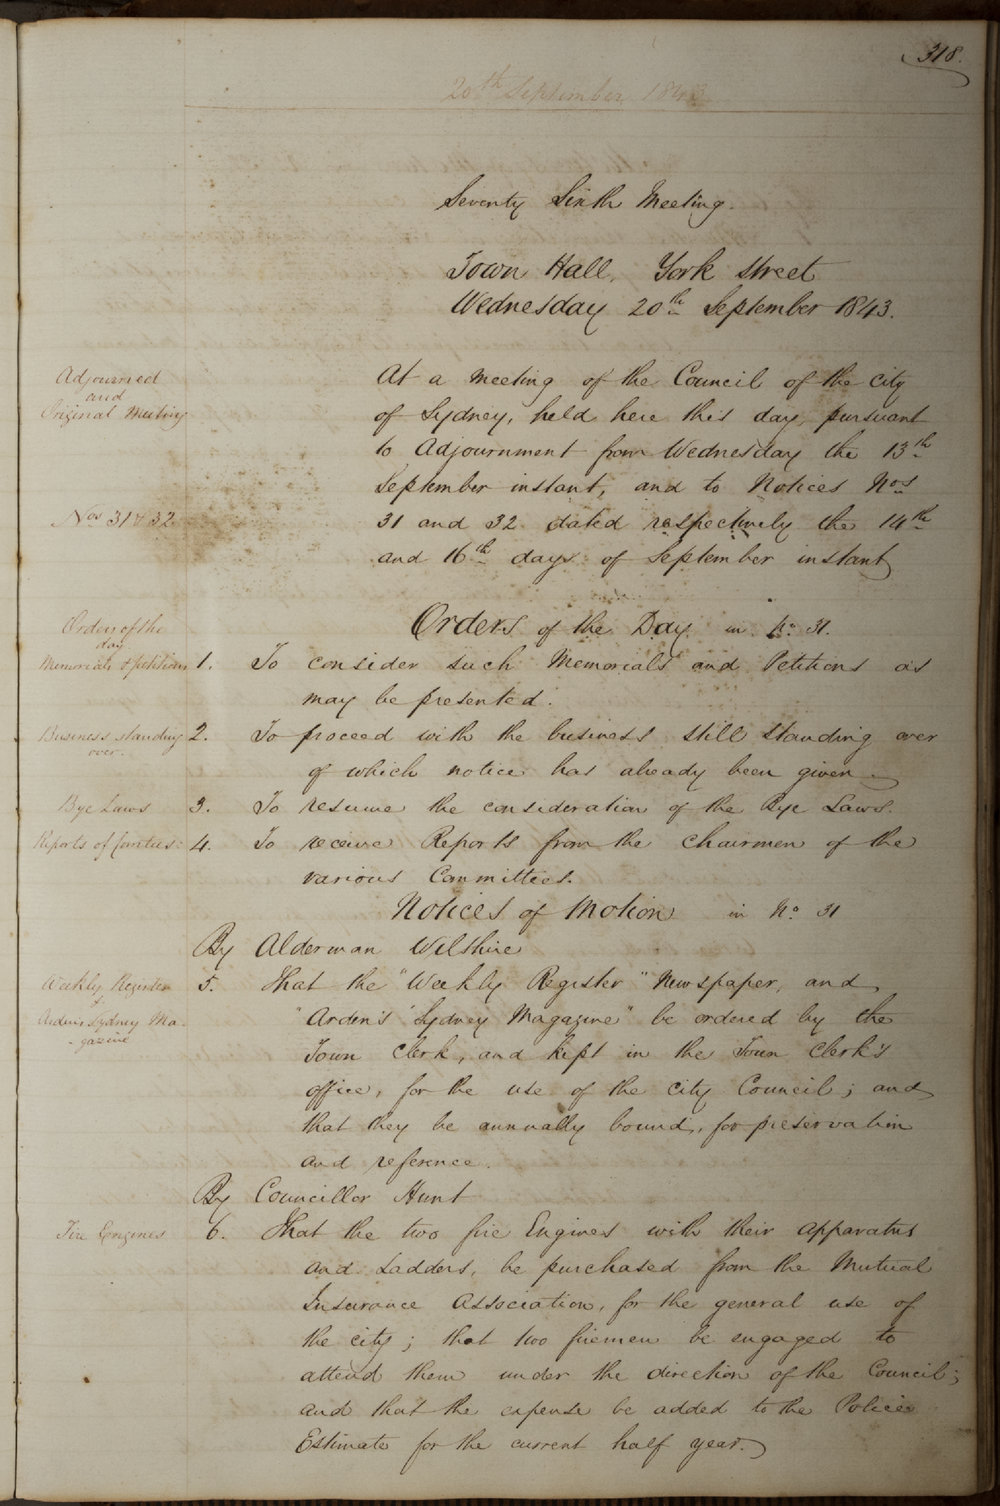 318.
20th September 1843
Seventy Sixth Meeting.
Town Hall, York Street
Wednesday 20th September 1843.
Adjourned
and
Original Meeting
At a Meeting of the Council of the City
of Sydney, held here this day, pursuant
to Adjournment from Wednesday the 13th
September instant, and to Notices Nos
Nos 31 & 32
31 and 32 dated respectively the 14th
and 16th days of September instant
Orders of the Day in No. 31.
Orders of the
day
Memorials & petitions
1. To consider such Memorials and Petitions as
may be presented.
Business standing
over.
2. To proceed with the business still standing over
of which notice has already been given
Bye Laws
3. To resume the consideration of the Bye Laws.
Reports of Comttees:
4. To receive Reports from the Chairmen of the
various Committees.
Notices of Motion in No. 31
By Alderman Wilshire
Weekly Register
&
Arden's Sydney Ma-
-gazine
5. That the "Weekly Register" Newspaper, and
"Arden's Sydney Magazine" be ordered by the
Town Clerk, and kept in the Town Clerk's
office, for the use of the City Council; and
that they be annually bound, for preservation
and reference.
By Councillor Hunt
Fire Engines
6. That the two fire Engines with their apparatus
and Ladders, be purchased from the Mutual
Insurance Association, for the general use of
the city; that two firemen be engaged to
attend them under the direction of the Council;
and that the expense be added to the Police
Estimate for the current half year.